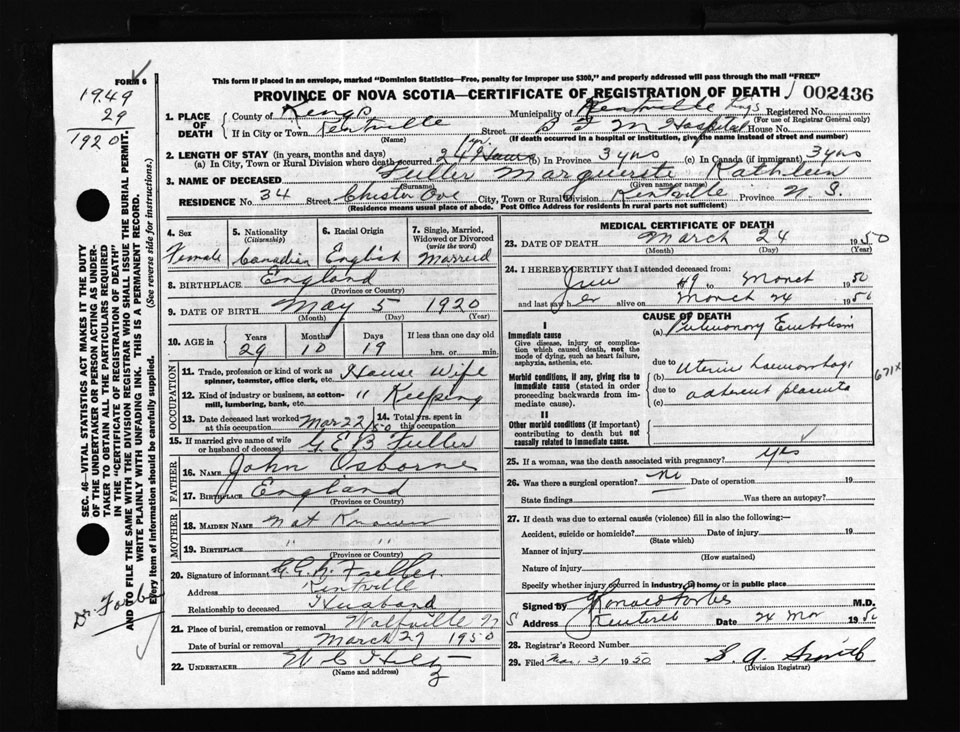 FORM 6
This form if placed in an envelope, marked "Dominion Statistics—Free, penalty for improper use $300," and properly addressed will pass through the mail "FREE"
PROVINCE OF NOVA SCOTIA—CERTIFICATE OF REGISTRATION OF DEATH 002436
1949
29
1920
1. PLACE OF DEATH County of Kings Municipality of Kentville Kings Registered No.
(For use of Registrar General only)
If in City or Town Kentville Street B F M Hospital House No.
(Name) (If death occurred in a hospital or institution, give the name instead of street and number)
2. LENGTH OF STAY (in years, months and days)
(a) In City, Town or Rural Division where death occurred 24 Hours (b) In Province 3 yrs (c) In Canada (if immigrant) 3 yrs
3. NAME OF DECEASED Fuller Marguerite Kathleen
(Surname) (Given name or names)
RESIDENCE No. 34 Street Chester Ave City, Town or Rural Division Kentville Province N. S.
(Residence means usual place of abode. Post Office Address for residents in rural parts not sufficient)
SEC. 46—VITAL STATISTICS ACT MAKES IT THE DUTY
OF THE UNDERTAKER OR PERSON ACTING AS UNDER-
TAKER TO OBTAIN ALL THE PARTICULARS REQUIRED
IN THE "CERTIFICATE OF REGISTRATION OF DEATH"
AND TO FILE THE SAME WITH THE DIVISION REGISTRAR WHO SHALL ISSUE THE BURIAL PERMIT.
WRITE PLAINLY WITH UNFADING INK. THIS IS A PERMANENT RECORD.
Every item of information should be carefully supplied. (See reverse side for instructions.)
Dr. Forbes
4. Sex 5. Nationality (Citizenship) 6. Racial Origin 7. Single, Married, Widowed or Divorced (write the word)
Female Canadian English Married
8. BIRTHPLACE England
(Province or Country)
9. DATE OF BIRTH May 5 1920
(Month) (Day) (Year)
10. AGE in Years Months Days If less than one day old
29 10 19 hrs. or min.
OCCUPATION
11. Trade, profession or kind of work as spinner, teamster, office clerk, etc. House Wife
12. Kind of industry or business, as cotton-mill, lumbering, bank, etc. " Keeping
13. Date deceased last worked at this occupation Mar 22/50 14. Total yrs. spent in this occupation
15. If married give name of wife or husband of deceased G. E. B Fuller
FATHER
16. Name John Osborne
17. Birthplace England
(Province or Country)
MOTHER
18. Maiden Name Not Known
19. Birthplace " "
(Province or Country)
20. Signature of informant Fuller
Address Kentville
Relationship to deceased Husband
21. Place of burial, cremation or removal Wolfville
Date of burial or removal March 27 1950
22. UNDERTAKER W C Hiltz
(Name and address)
MEDICAL CERTIFICATE OF DEATH
23. DATE OF DEATH March 24 1950
(Month) (Day) (Year)
24. I HEREBY CERTIFY that I attended deceased from:
June 49 to March 1950
and last saw her alive on March 24 1950
CAUSE OF DEATH
I
Immediate cause (a) Pulmonary Embolism
Give disease, injury or complication which caused death, not the mode of dying, such as heart failure, asphyxia, asthenia, etc.
due to
Morbid conditions, if any, giving rise to immediate cause (stated in order proceeding backwards from immediate cause). (b) Uterine haemorrhage
due to adherent placenta
(c)
671X
II
Other morbid conditions (if important) contributing to death but not causally related to immediate cause.
25. If a woman, was the death associated with pregnancy? Yes
26. Was there a surgical operation? no Date of operation 19
State findings Was there an autopsy?
27. If death was due to external causes (violence) fill in also the following:—
Accident, suicide or homicide? Date of injury 19
(State which)
Manner of injury
(How sustained)
Nature of injury
Specify whether injury occurred in industry, in home, or in public place
Signed by Donald Forbes M.D.
Address Kentville Date 24 Mar 1950
28. Registrar's Record Number
29. Filed Mar. 31 1950 S. A. Smith
(Division Registrar)